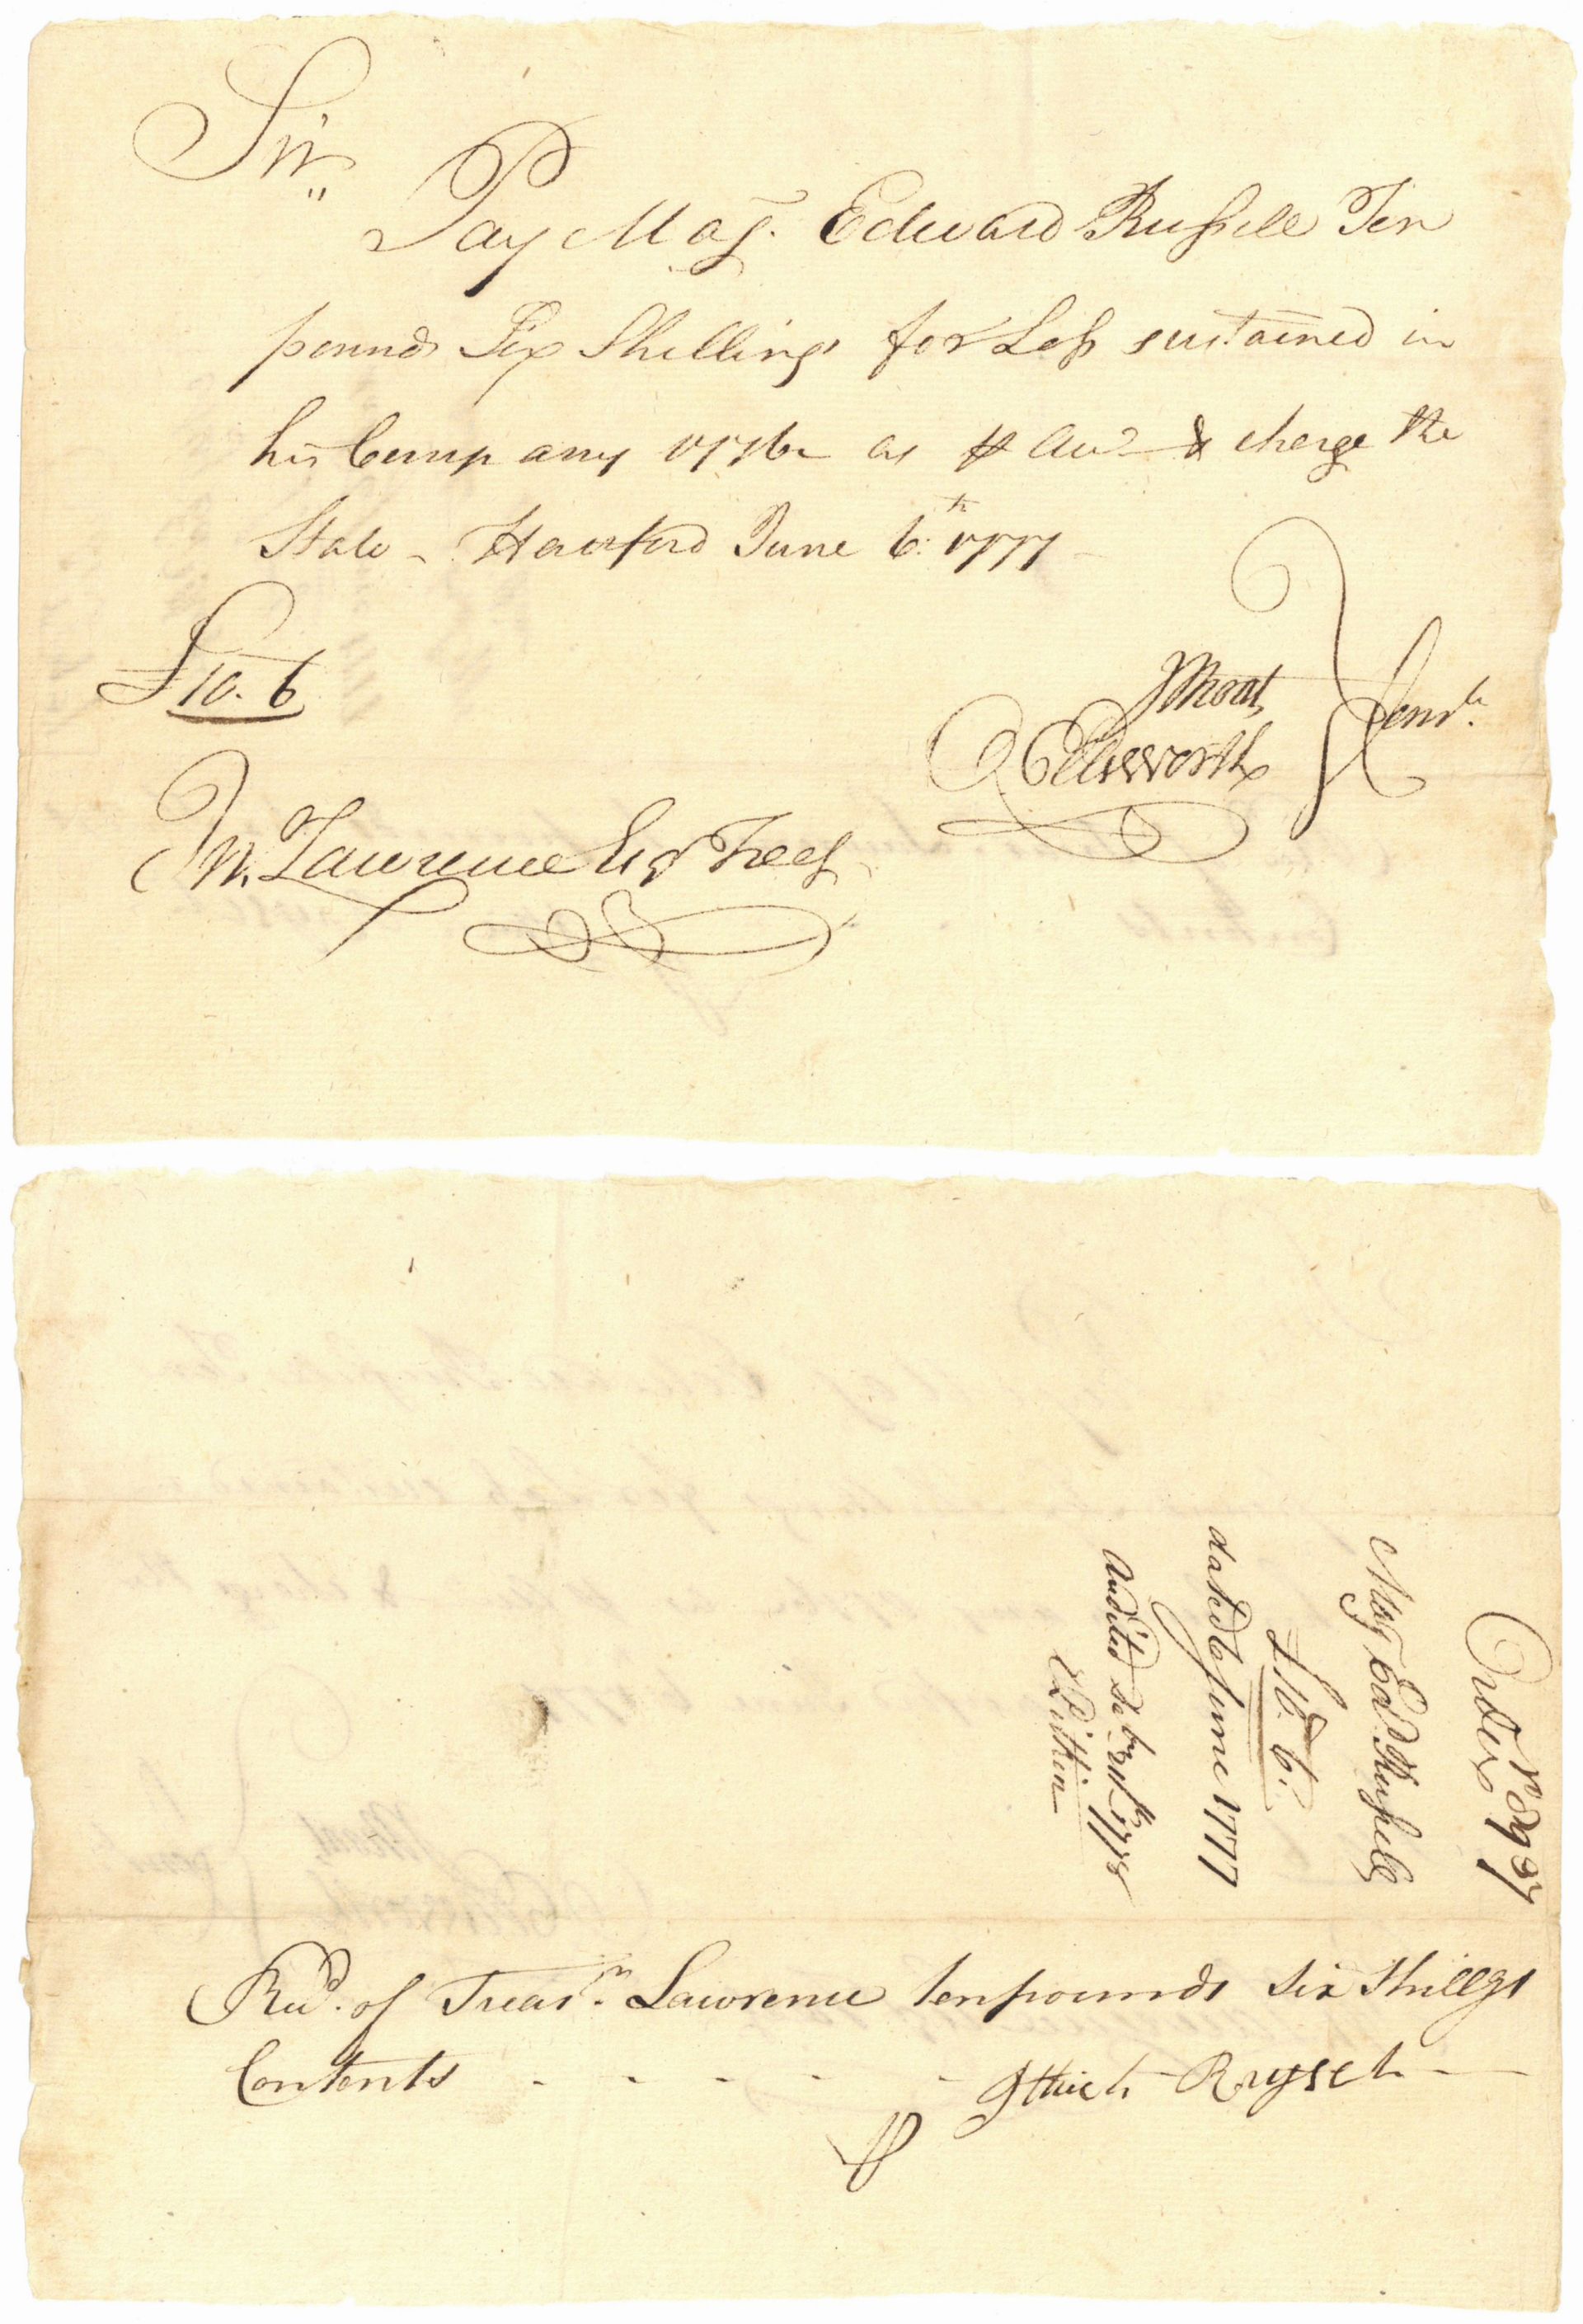 Sir,,
Pay Maj. Edward Russell Ten
pounds Six Shillings for Loss sustained in
his Company 1776 as ⅌ Acc & charge the
State - Hartford June 6th 1777
£10.6
J Moat
O Ellsworth
Comte
Jn. Lawrence Esq Treas
Order
Maj Ed. Russell
£10.6.
dated 6 June 1777
Audited
1778
Recd. of Treasr. Lawrence ten pounds six Shillgs
Contents - - - - -